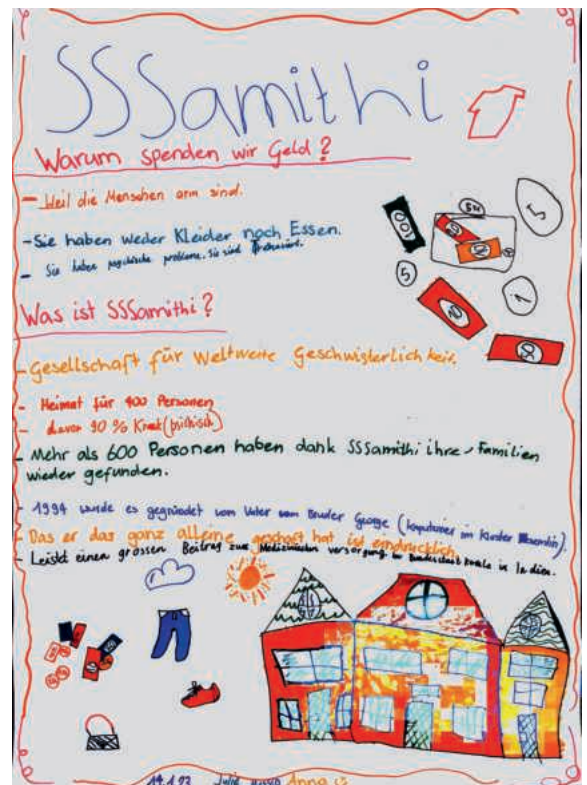 SSSamithi
Warum spenden wir Geld?
- Weil die Menschen arm sind.
- Sie haben weder Kleider noch Essen.
- Sie haben psychische probleme. Sie sind
Was ist SSSamithi?
- Gesellschaft für Weltweite Geschwisterlichkeit.
- Heimat für 400 Personen
- davon 90 % Krank (psichisch)
- Mehr als 600 Personen haben dank SSSamithi ihre Familien
wieder gefunden.
- 1994 wurde es gegründet vom Vater vom Bruder George (kapuziner im Kloster Wesemlin).
- Das er das ganz alleine geschaft hat ist eindrücklich.
- Leistet einen grossen Beitrag zur Medizinischen versorgung im Bundesstaat Kerala in Indien.
100
50
5
5
1
10
50
Julia
Anna